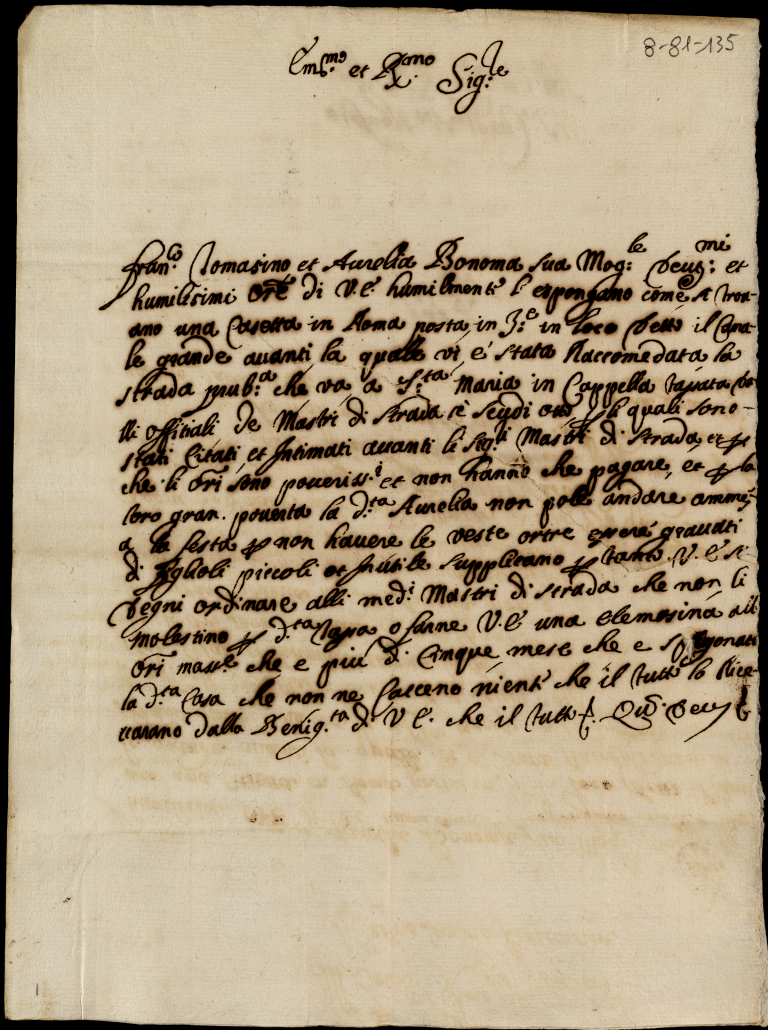 8-81-135
Em.mo et R.mo Sig.re
Fran.co Tomasino et Aurelia Bonoma sua Mog.le Devot.mi et
humilissimi Ori di V.E. humilmente l'espongano come si trov
ano una Casetta in Roma posta in T.e in loco detto il Cana
le grande avanti la quale vi è stata Raccomedata la
strada pub.a che va a S.ta Maria in Cappella tassata da
lli offitiali de Mastri di strada sè scudi li quali sono
stati Citati et Intimati avanti li Sig.ri Mastri di strada et p
che li Ori sono poveriss.i et non hanno che pagare, et p la
loro gran. povertà la d.ta Aurelia non pole andare a mme
a la festa p non havere le veste oltre essere gravati
di figlioli piccoli et Inutile supplicano p tanto V.E. si
degni ordinare alli med.i Mastri di strada che non li
molestino p d.ta tassa o farne V.E. una elemosina alli
Ori mass.e che e più di Cinque mese che e spigionata
la d.ta Casa che non ne Cacceno niente che il tutto lo Rice
varano dalla Benig.ta di V.E. che il tutto Quas Deus